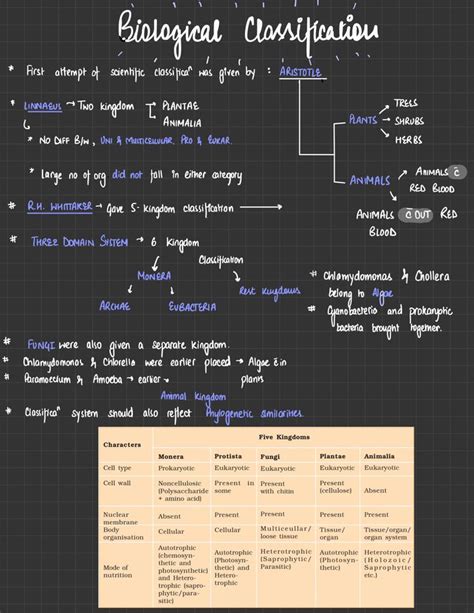 Biological Classification
* First attempt of scientific classificaⁿ was given by : ARISTOTLE
* LINNAEUS → Two kingdom PLANTAE
ANIMALIA
* NO DIFF B/W, UNI & MULTICELLULAR, PRO & EUKAR.
* Large no of org did not fall in either category
PLANTS → TREES
→ SHRUBS
→ HERBS
ANIMALS → ANIMALS c̄
RED BLOOD
ANIMALS c̄ OUT RED
BLOOD
# R.H. WHITTAKER → Gave 5- kingdom classification →
# THREE DOMAIN SYSTEM → 6 Kingdom
Classification
MONERA
Rest Kingdoms
ARCHAE EUBACTERIA
# Chlamydomonas & Chollera
belong to Algae
# Cyanobacterio and prokaryotic
bacteria brought together.
# FUNGI were also given a separate kingdom.
* Chlamydomonos & Chlorella were earlier placed → Algae c̄ in
plants
* Paramoecium & Amoeba → earlier →
Animal kingdom
* Classificaⁿ system should also reflect Phylogenetic similarities.
Characters Five Kingdoms
Monera Protista Fungi Plantae Animalia
Cell type Prokaryotic Eukaryotic Eukaryotic Eukaryotic Eukaryotic
Cell wall Noncellulosic (Polysaccharide + amino acid) Present in some Present with chitin Present (cellulose) Absent
Nuclear membrane Absent Present Present Present Present
Body organisation Cellular Cellular Multiceullar/ loose tissue Tissue/ organ Tissue/organ/ organ system
Mode of nutrition Autotrophic (chemosynthetic and photosynthetic) and Heterotrophic (saprophytic/parasitic) Autotrophic (Photosynthetic) and Heterotrophic Heterotrophic (Saprophytic/ Parasitic) Autotrophic (Photosynthetic) Heterotrophic (Holozoic/ Saprophytic etc.)